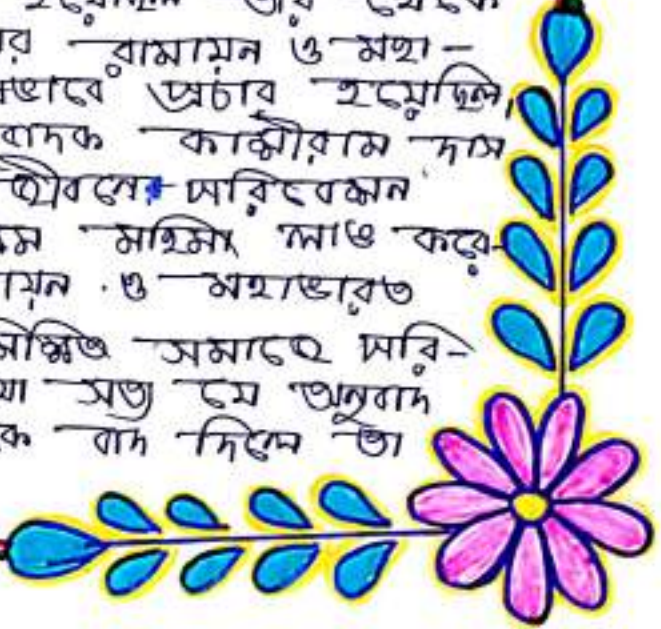 হয়েছিল তার থেকে
রামায়ন ও মহা-
ভাবে প্রচার হয়েছিল,
বাদক কাশীরাম দাস
জীবনে পরিবেশন
মহিমা লাভ করে-
য়ন ও মহাভারত
সমাজে পরি-
সত্য যে অনুবাদ
বাদ দিলে তা